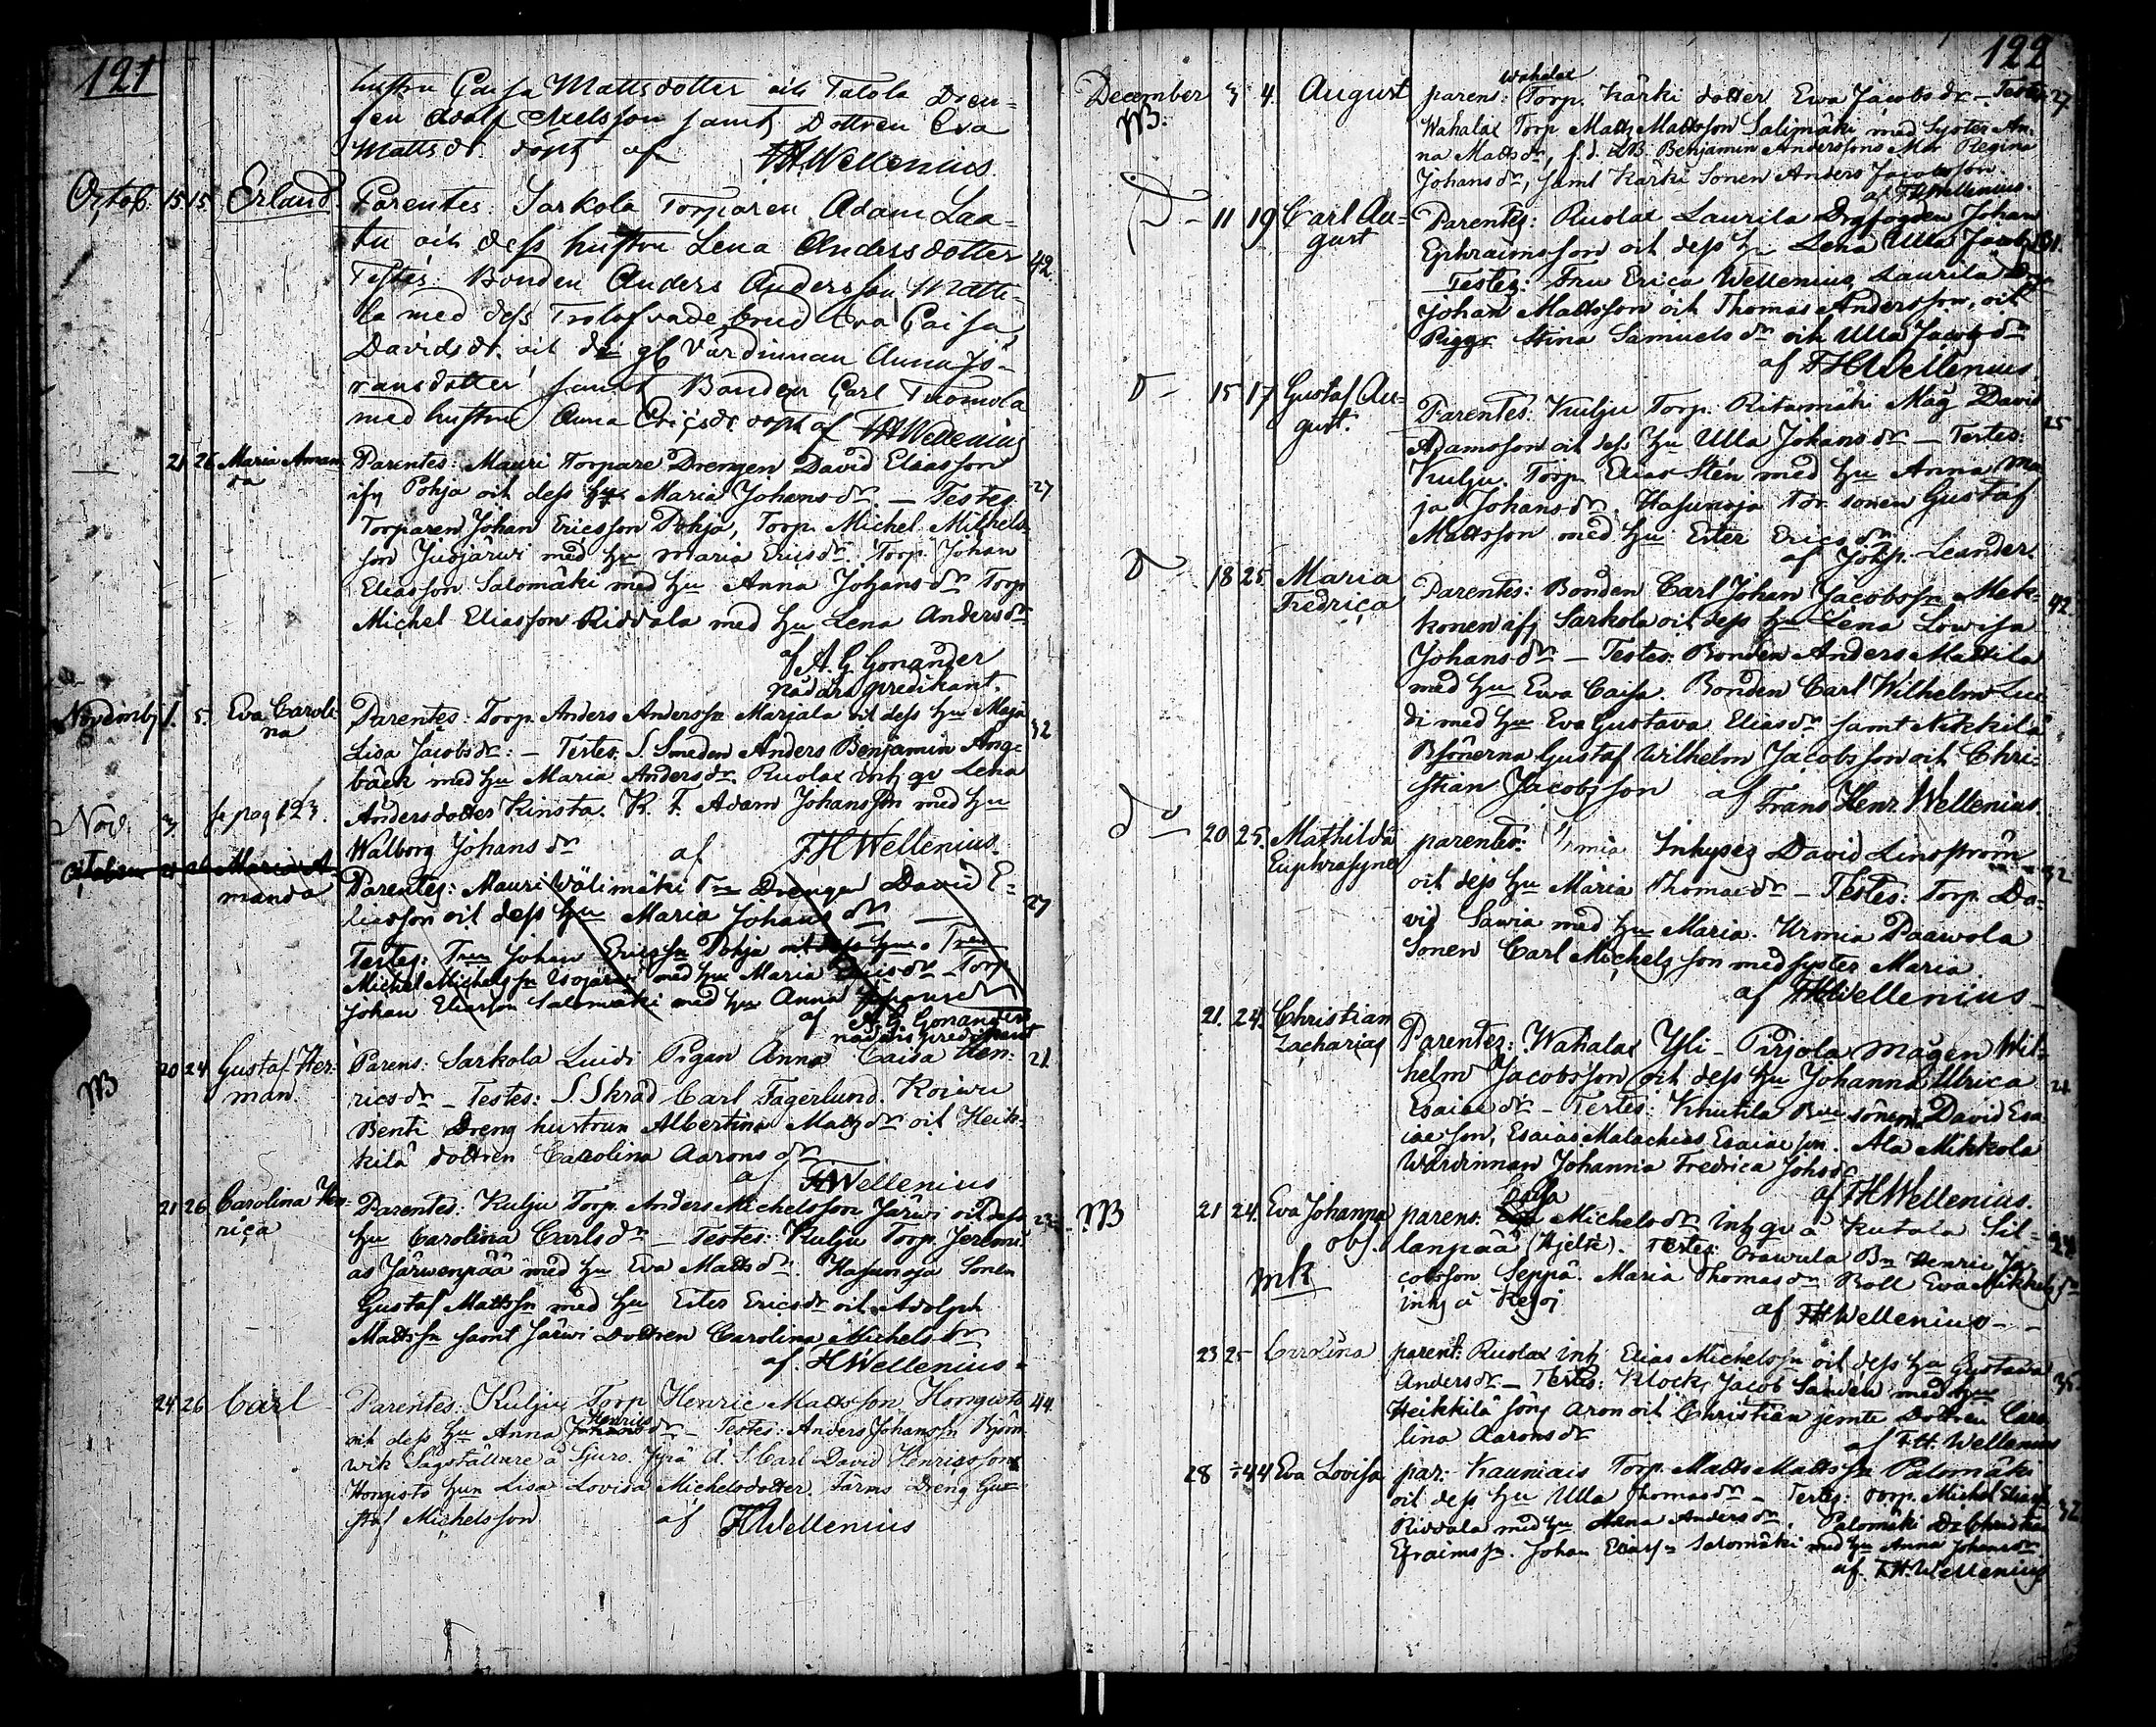 121
hustru Caisa Mattsdotter och Talola Dren-
gen Adolf Nielsson samt Dottren Eva
Mattsdr. döpt af FHWellenius.
Octob. 15 15 Erland. Parentes: Sarkola Torparen Adam Laa-
tu och dess hustru Lena Andersdotter 42.
Testes: Bonden Anders Andersson Matti-
la med dess Trolofvade brud Eva Caisa
Davidsdr. och gl. Värdinnan Anna Jö-
ransdotter samt Bonden Carl Tuomola
med hustru Anna Ericsdr. döpt af FHWellenius
21 26 Maria Aman-
da
Parentes: Mauri Torpare Drengen David Eliasson
ifr Pohja och dess hu Maria Johansdr. — Testes 27
Torparen Johan Ericsson Pohja, Torp. Michel Michels-
son Isojärwi med hu Maria Ericsdr. Torp. Johan
Eliasson Salomäki med hu Anna Johansdr Torp.
Michel Eliasson Riddala med hu Lena Andersdr
af A. G. Gonander
nådårs predikant.
Novemb. 1. 5. Eva Caroli-
na
Parentes: Torp. Anders Anderssn Marjala och dess hu Maja 32
Lisa Jacobsdr: — Testes: S. Smeden Anders Benjamin Ång-
bäck med hu Maria Andersdr Ruolax inh. qv Lena
Andersdotter Kinsta. K. F. Adam Johansson med hu
Walborg Johansdr af FHWellenius.
Nov. 3 se pag 123.
October 21 26 Maria A-
manda
Parentes: Mauri Wälimäki Drengen David E- 27
liasson och dess hu Maria Johansdr —
Testes: Johan Ericssn Pohja och dess hu.
Michel Michelssn Isojärwi med hu Maria Ericsdr — Torp
Johan Eliasson Salomäki med hu Anna Johansdr
af A. G. Gonander
nådårs predikant
20 24 Gustaf Her-
man.
Parens: Sarkola Luidi Pigan Anna Caisa Hen- 21.
ricsdr — Testes: S. Skräd. Carl Fagerlund. Koiwu
Benti Dreng hustrun Albertina Mattsdr och Heik-
kilä dottren Carolina Aaronsdr
af FHWellenius
21 26 Carolina Hen-
rica
Parentes: Kulju Torp. Anders Michelsson Järwi och dess 23
hu Carolina Carlsdr — Testes: Kulju Torp. Jeremi-
as Järwenpää med hu Eva Mattsdr. Hasunoja Sonen
Gustaf Mattssn med hu Ester Ericsdr och Adolph
Mattssn samt Järwi Dottren Carolina Michelsdr
af FHWellenius.
24 26 Carl Parentes: Kulju Torp Henric Mattsson Hongisto 44
och dess hu Anna Henricsdr — Testes: Anders Johanssn Björn-
wik Sågställare å Sjuro. A. S. Carl David Henricsson
Hongisto hun Lisa Lovisa Michelsdotter, Färms Dreng Gu-
staf Michelsson af FHWellenius
122
December 3 4. August parens: Wahalax Torp. Kärki dotter Ewa Jacobsdr — Testes 27
Wahalax Torp Matts Mattsson Salimäki med Syster An-
na Mattsdr, f. d. Benjamin Anderssons Mor Regina
Johansdr, samt Kärki Sonen Anders Jacobsson.
af FHWellenius.
11 19 Carl Au-
gust
Parentes: Ruolax Laurila Drgfogden Johan
Ephraimsson och dess hu Lena Ulla Jacobsdr 31.
Testes: Fru Erica Wellenius, Laurila Dr
Johan Mattsson och Thomas Andersson, och
Pigor Stina Samuelsdr och Ulla Jacobsdr
af FHWellenius
15 17 Gustaf Au-
gust.
Parentes: Kulju Torp. Ritarmäki Måg David 25
Adamsson och dess hu Ulla Johansdr — Testes:
Kulju. Torp. Elias Stén med hu Anna Ma-
ja Johansdr. Hasunoja Tor. sonen Gustaf
Mattsson med hu Ester Ericsdr
af Johs. Leander.
18 25. Maria
Fredrica
Parentes: Bonden Carl Johan Jacobssn Mek- 42
konen ifr Sarkola och dess hu Lena Lowisa
Johansdr — Testes: Bonden Anders Mattila
med hu Ewa Caisa. Bonden Carl Wilhelm Lui-
di med hu Eva Gustava Eliasdr samt Nikkilä
Bsönerna Gustaf Wilhelm Jacobsson och Chri-
stian Jacobsson af Frans Henr. Wellenius.
20 25. Mathilda
Euphrosyne
parentes: Urmia Inhyses David Lindström 32
och dess hu Maria Thomasdr — Testes: Torp. Da-
vid Sawia med hu Maria. Urmia Paawola
Sonen Carl Michelsson med syster Maria.
af FHWellenius —
21. 24. Christian
Zacharias
Parentes: Wahalax Yli-Pirjola Mågen Wil-
helm Jacobsson och dess hu Johanna Ulrica 21
Esaiaedr — Testes: Knutila Bdesönerna David Esa-
iaesson, Esaias Malachias Esaiaesson. Ala Mikkola
Wärdinnan Johanna Fredrica Johsdr
af FHWellenius.
21 24. Eva Johanna
obs.
mk
parens: Caisa Michelsdr inh qv å Kutala Sil-
lanpää (Hjelte). Testes: Orawula Bn Henric Ja- 24
cobsson Seppä. Maria Thomasdr Boll Eva Mickelsdr
inh å Kesoj
af FHWellenius — -
23 25 Carolina parent: Ruolax inh Elias Michelssn och dess hu Gustava
Andersdr — Testes: Klock. Jacob Sandén med hu 35
Heikkilä söns Aron och Christian jemte Dottren Caro-
lina Aaronsdr
af F. H. Wellenius
28 Eva Lovisa par: Kauniais Torp. Matts Mattssn Palomäki
och dess hu Ulla Thomasdr — Testes: Torp. Michel Eliassn
Riddala med hu Lena Andersdr. Palomäki Dr Christian 32
Efraimssn. Johan Eliassn Salomäki med hu Anna Johansdr
af F. H. Wellenius